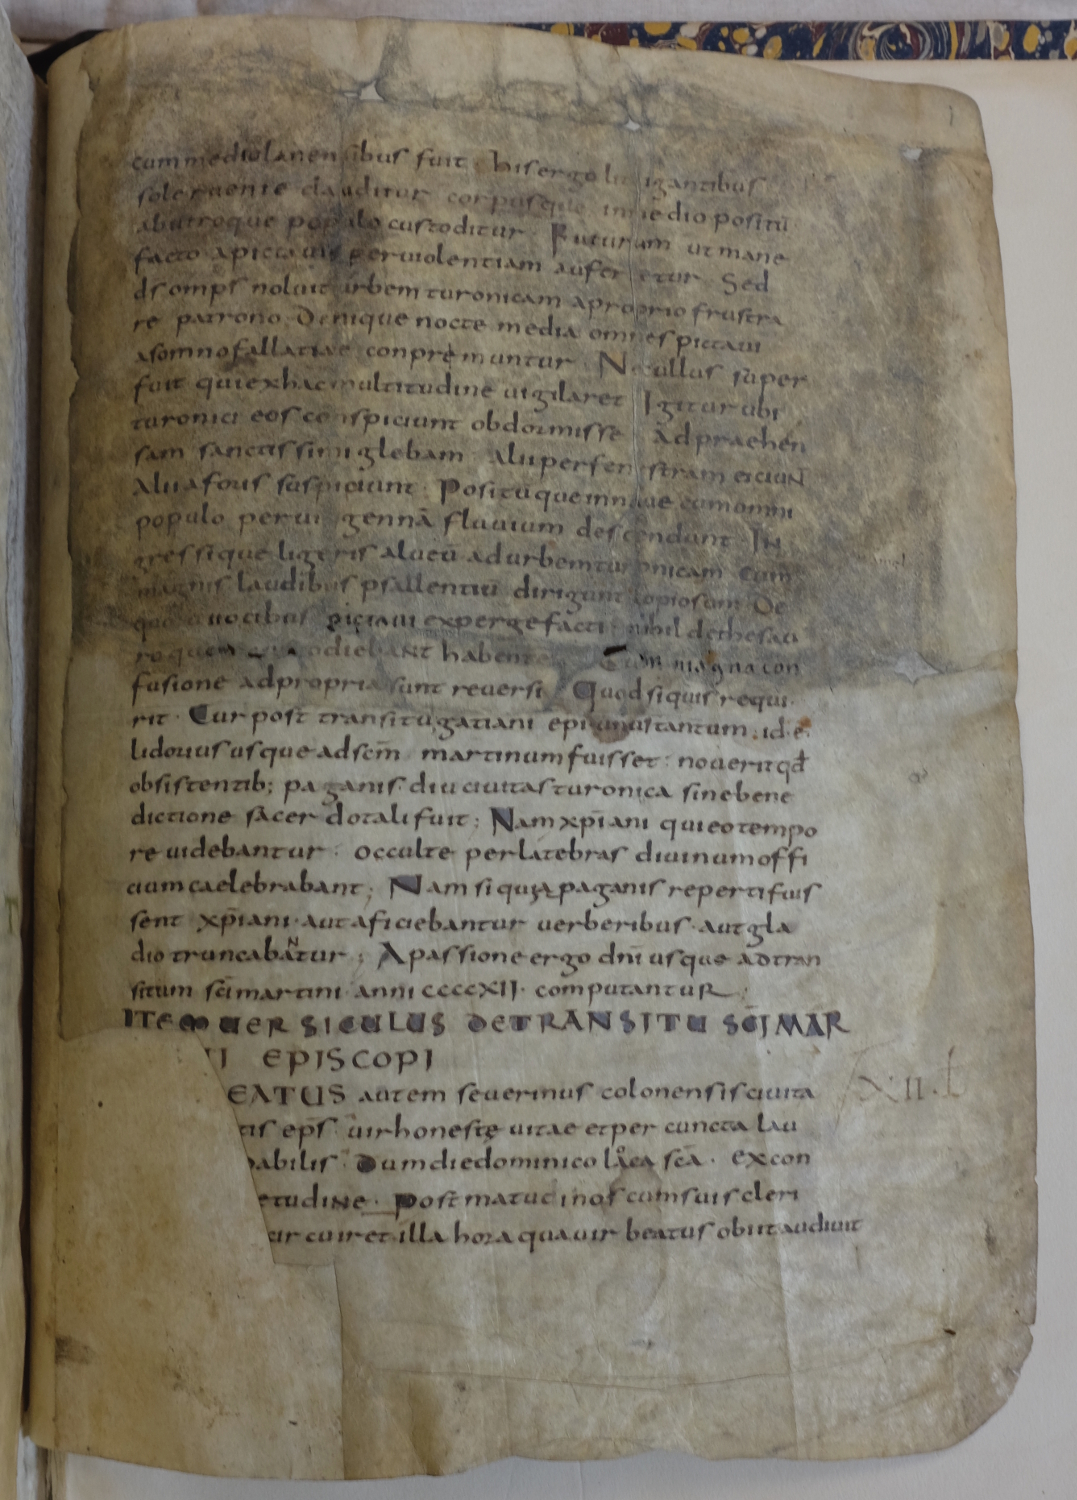 cum mediolanensibus fuit hisergo litigantibus
sole ruente clauditur corpusque in medio positū
Abutroque populo custoditur. Futurum ut mane
facto apictavis perviolentiam auferretur. Sed
ds omps noluit urbem turonicam aproprio frustra
re patrono. Denique nocte media omnes pictavi
asomno fallatiae conpremuntur Nec ullus super
fuit qui exhac multitudine vigilaret Igitur ubi
turonici eos conspiciunt obdormisse Adpraehen
sam sanctissimi glebam alii perfenestram eiciuN
Alii aforis suspiciunt. Positūque innave cum omni
populo pervi gennā fluvium descendunt. IN
gressique ligeris alveū adurbem turonicam cum
magnis laudibus psallentiū dirigunt copiosum De
quorū vocibus pictavi expergefacti nihil dethesau
ro quem custodiebANt habentes Cum magna con
fusione adpropria sunt reversi. Quod siquis requi
rit. Cur post transitū gatiani epi unus tantum. id. e.
lidorius usque adscm martinum fuisset: noverit qđ
obsistentib; paganis diu civitas turonica sine bene
dictione sacerdotali fuit; Nam xpīani qui eo tempo
re videbantur. occulte per latebras divinum offi
cium caelebrabant; Nam si qui a paganis reperti fuis
sent xpīani. aut aficiebantur verberibus. aut gla
dio truncabaNtur; Apassione ergo dnī usque adtran
situm scī martini. anni ccccXII. computantuR;
ITEM VERSICULUS DETRANSITU SCĪ MAR
TI EPISCOPI
EATUS autem severinus colonensis civita
tis eps. vir honestę vitae et per cuncta lau
dabilis. Dum die dominico loca scā. excon
etudine. post matutinos cum suis cleri
cir cuiret illa hora qua vir beatus obiit audivit
XII. t